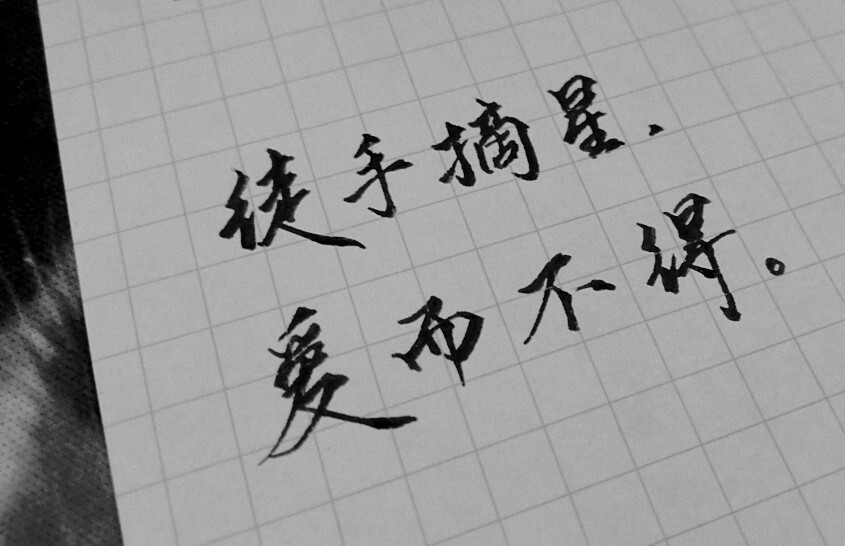 徒手摘星、
爱而不得。